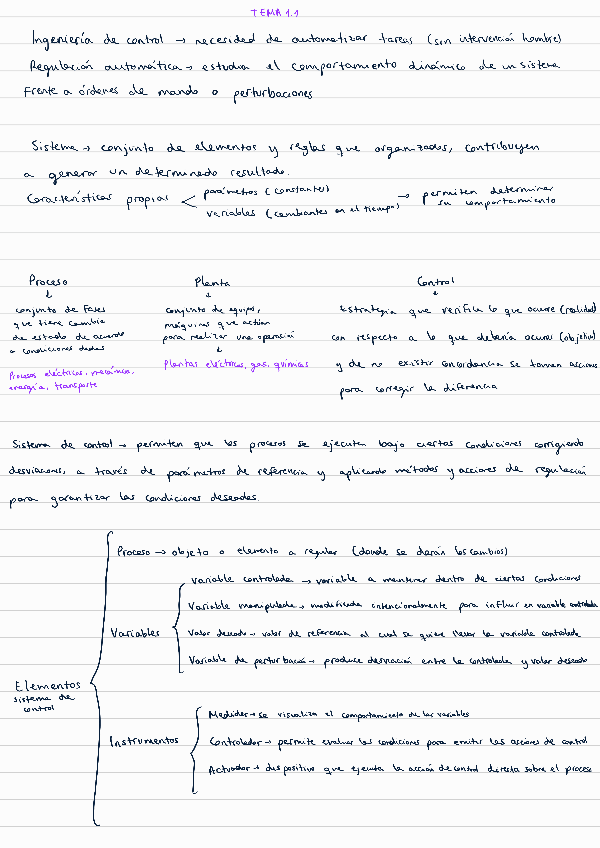 TEMA 1.1
Ingeniería de control → necesidad de automatizar tareas (sin intervención hombre)
Regulación automática → estudia el comportamiento dinámico de un sistema
frente a órdenes de mando o perturbaciones
Sistema → conjunto de elementos y reglas que organizados, contribuyen
a generar un determinado resultado.
Características propias < parámetros (constantes)
variables (cambiantes en el tiempo) → permiten determinar
su comportamiento
Proceso
↓
conjunto de fases
que tiene cambia
de estado de acuerdo
a condiciones dadas
Procesos eléctricos, mecánica,
energía, transporte
Planta
↓
conjunto de equipos,
máquinas que actúan
para realizar una operación
↓
Plantas eléctricas, gas, químicas
Control
↓
Estrategia que verifica lo que ocurre (realidad)
con respecto a lo que debería ocurrir (objetivo)
y de no existir concordancia se toman acciones
para corregir la diferencia
Sistema de control → permiten que los procesos se ejecuten bajo ciertas condiciones corrigiendo
desviaciones, a través de parámetros de referencia y aplicando métodos y acciones de regulación
para garantizar las condiciones deseadas.
Elementos
sistema de
control
Proceso → objeto o elemento a regular (donde se darán los cambios)
Variables
Variable controlada → variable a mantener dentro de ciertas condiciones
Variable manipulada → modificada intencionalmente para influir en variable controlada
Valor deseado → valor de referencia al cual se quiere llevar la variable controlada
Variable de perturbación → produce desviación entre la controlada y valor deseado
Instrumentos
Medidor → se visualiza el comportamiento de las variables
Controlador → permite evaluar las condiciones para emitir las acciones de control
Actuador → dispositivo que ejecuta la acción de control directa sobre el proceso